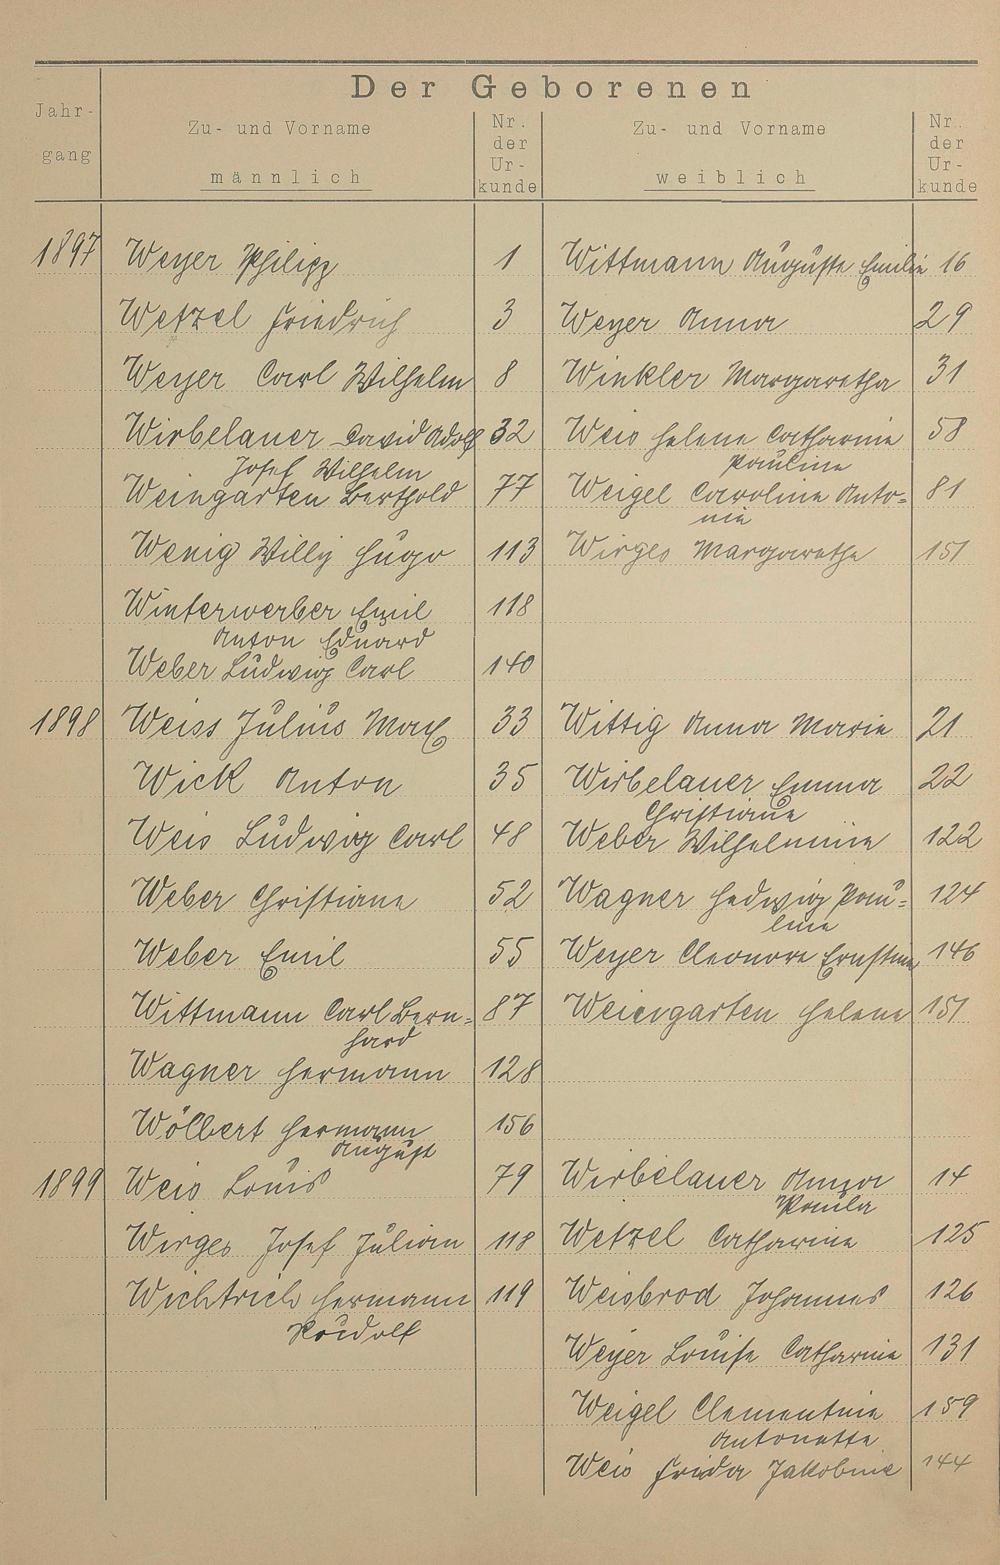 Der Geborenen
Jahr-
gang
Zu- und Vorname
männlich
Nr.
der
Ur-
kunde
Zu- und Vorname
weiblich
Nr.
der
Ur-
kunde
1897 Weyer Philipp 1 Wittmann Auguste Emilie 16
Wetzel Friedrich 3 Weyer Anna 29
Weyer Carl Wilhelm 8 Winkler Margaretha 31
Wirbelauer David Adolf 32 Weis Helene Catharine 58
Josef Wilhelm Pauline
Weingarten Berthold 77 Weigel Caroline Anto= 81
nie
Wenig Willy Hugo 113 Wirges Margarethe 151
Winterwerber Emil 118
Anton Eduard
Weber Ludwig Carl 140
1898 Weiss Julius Max 33 Wittig Anna Marie 21
Wick Anton 35 Wirbelauer Emma 22
Christiane
Weis Ludwig Carl 48 Weber Wilhelmine 122
Weber Christiane 52 Wagner Hedwig Pau= 124
line
Weber Emil 55 Weyer Eleonore Ernstine 146
Wittmann Carl Bern= 87 Weingarten Helene 151
hard
Wagner Hermann 128
Wölbert Hermann 156
August
1899 Weis Louis 79 Wirbelauer Anna 14
Paula
Wirges Josef Julian 118 Wetzel Catharine 125
Wichtrich Hermann 119 Weisbrod Johannes 126
Rudolf
Weyer Louise Catharine 131
Weigel Clementine 159
Antonette
Weis Frieda Jakobine 144